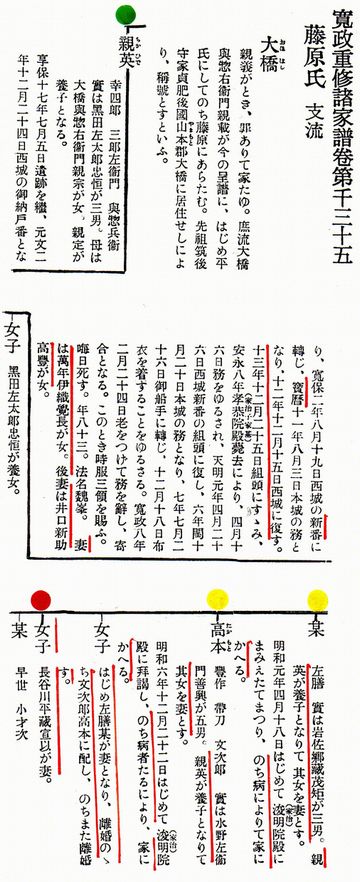 寬政重修諸家譜卷第千三十五
藤原氏 支流
大橋
おほはし
親義がとき、罪ありて家たゆ。庶流大橋
與惣右衞門親載が今の呈譜に、はじめ平
氏にしてのち藤原にあらたむ。先祖筑後
守家貞肥後國山本郡大橋に居住せしによ
り、稱號とすといふ。
親英
幸四郎 三郎左衞門 與惣兵衞
實は黑田左太郎忠恒が三男。母は
大橋與惣右衞門親宗が女。親定が
養子となる。
享保十七年七月五日遺跡を繼、元文二
年十二月二十四日西城の御納戶番とな
り、寬保二年八月十九日西城の新番に
轉じ、寶曆十一年八月三日本城の務と
なり、十二年十二月十五日西城に復す。
十三年十二月二十五日組頭にすゝみ、
安永八年孝恭院殿(家治公家基)薨去により、四月十
六日務をゆるされ、天明元年四月二十
六日西城新番の組頭に復し、六年閏十
月二十日本城の務となり、七年七月二
十六日御船手に轉じ、十二月十八日布
衣を着することをゆるさる。寬政八年
二月二十四日老をつげて務を辭し、寄
合となる。このとき時服三領を賜ふ。
晦日死す。年八十三。法名魏峯。 妻
は萬年伊織覺長が女。後妻は井口新助
高豐が女。
女子
黑田左太郎忠恒が養女。
某
左膳 實は岩佐鄕藏茂矩が三男。親
英が養子となりて其女を妻とす。
明和元年四月十八日はじめて浚明院殿(家治)に
まみえたてまつり、のち病によりて家に
かへる。
高本
豐作 帶刀 文次郎 實は水野左衞
門善興が五男。親英が養子となりて
其女を妻とす。
明和六年十二月二十二日はじめて浚明院(家治)
殿に拜謁し、のち病者たるにより、家に
かへる。
女子
はじめ左膳某が妻となり、離婚のゝ
ち文次郎高本に配し、のちまた離婚
す。
女子
長谷川平藏宣以が妻。
某
早世 小才次